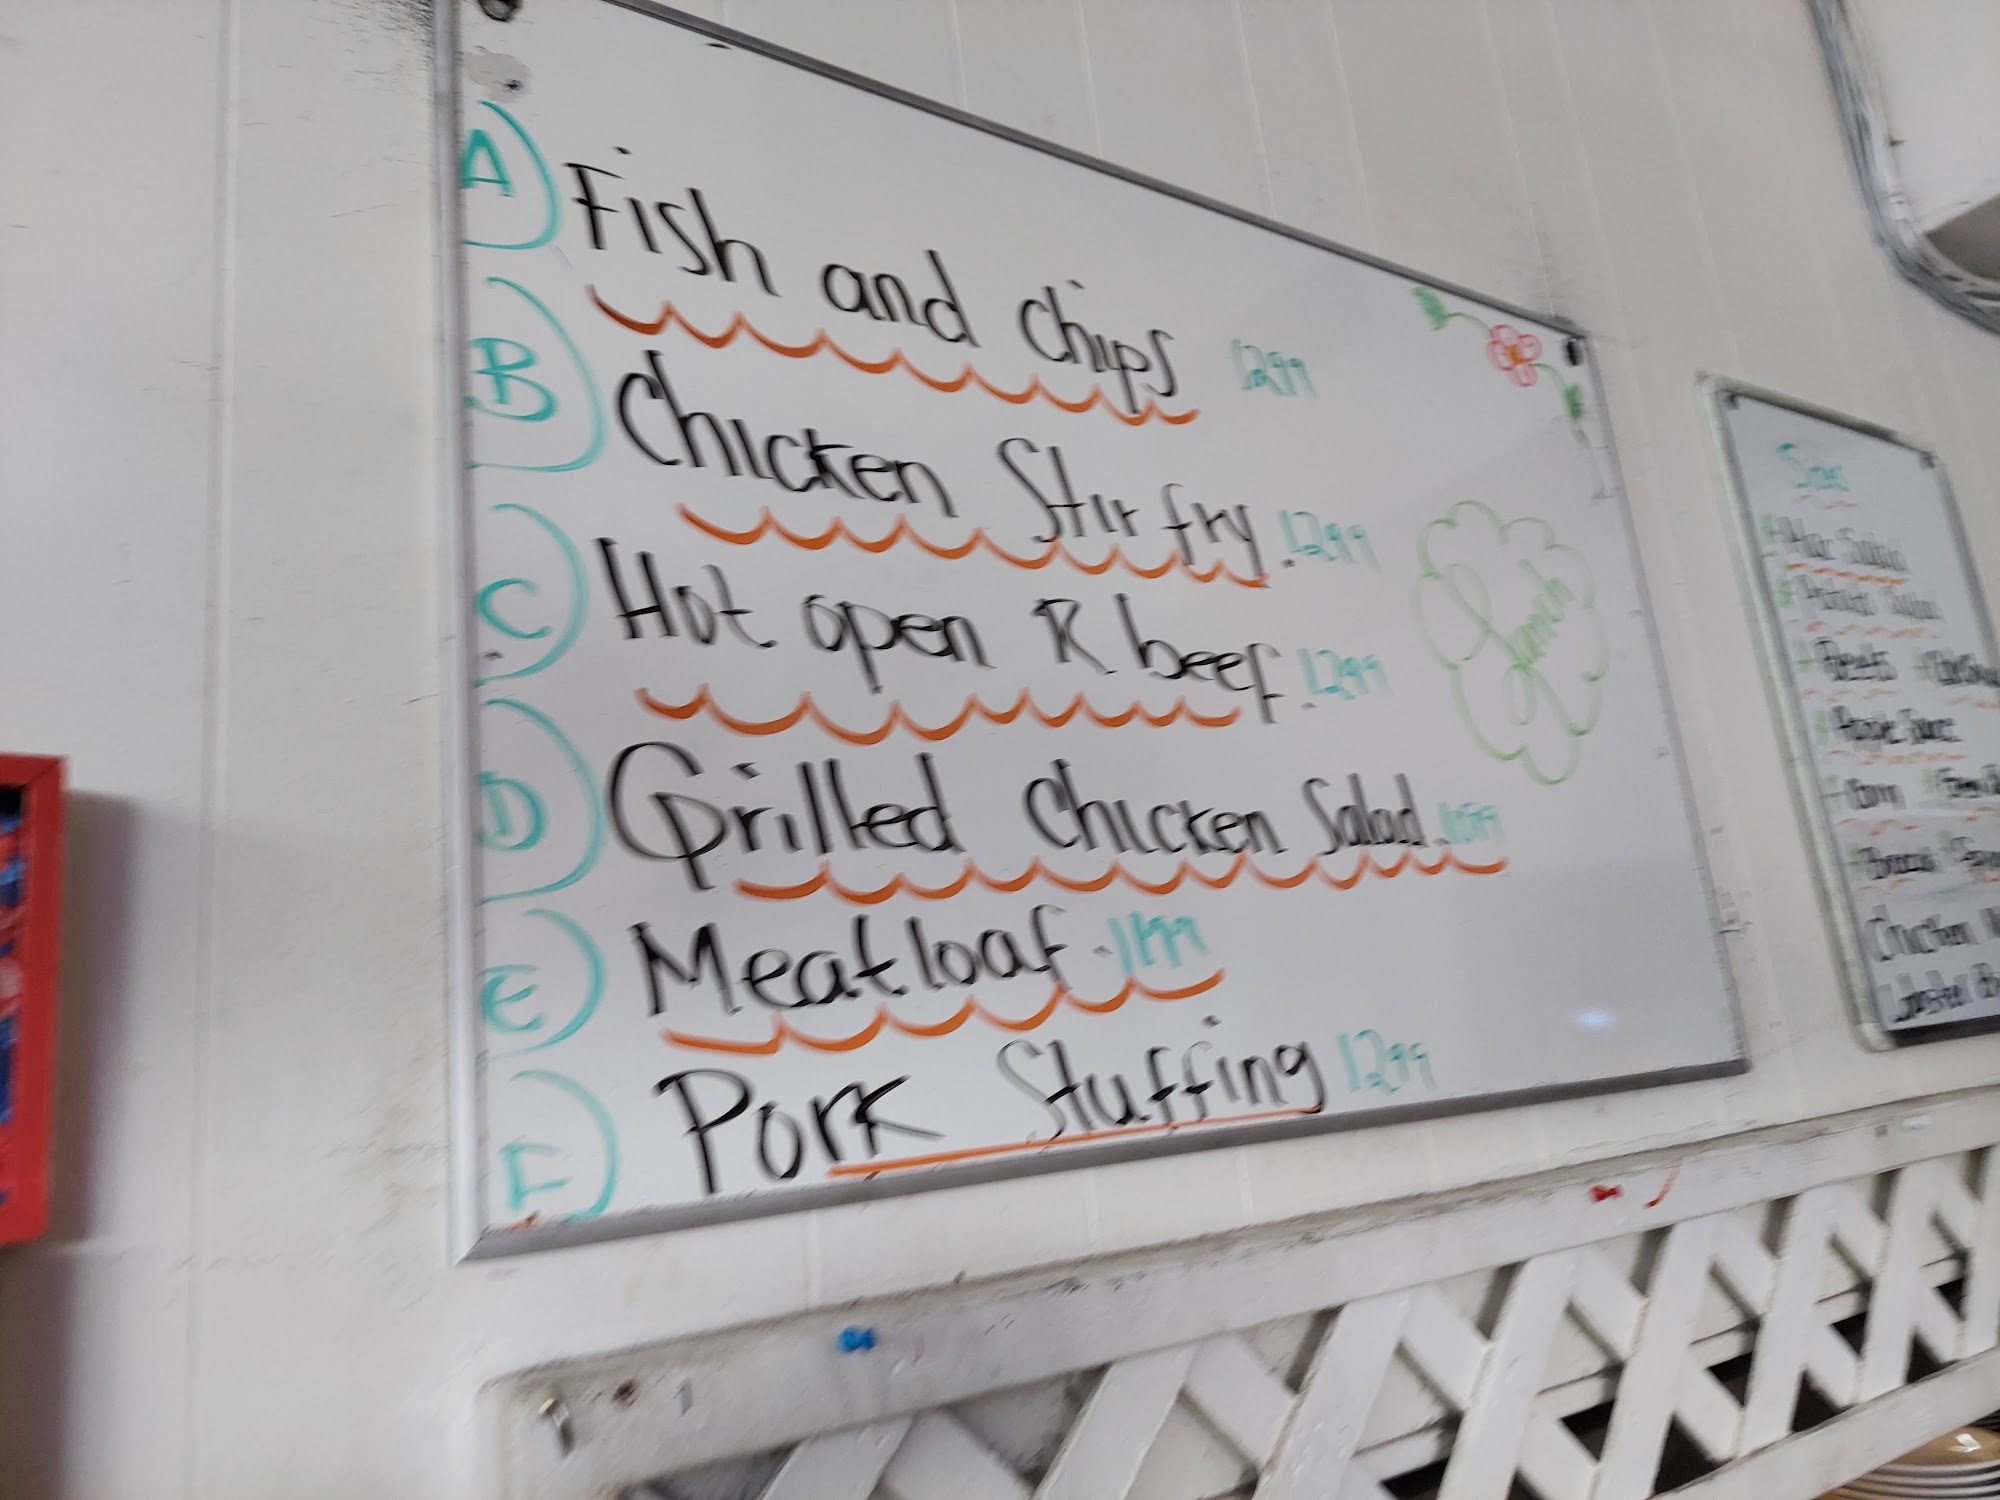 A Fish and Chips 1299
B Chicken Stir fry .1299
C Hot open R beef .1299
D Grilled Chicken Salad .1099
E Meatloaf .1199
F Pork Stuffing 1299
Lunch
Sides
Mac Salad
Potato Salad
Beets
Apple Sauce
Corn
Chicken